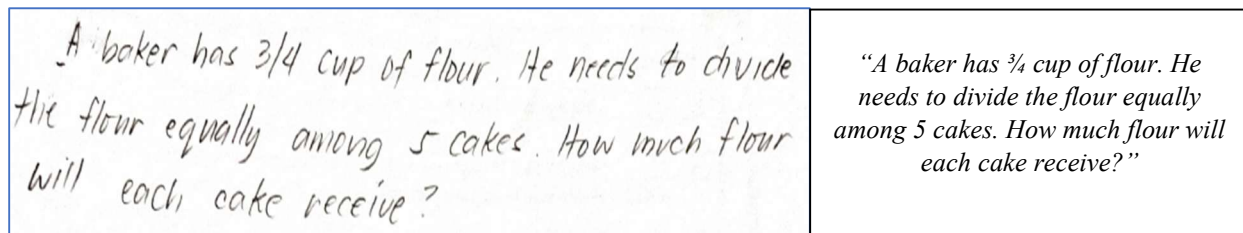 A baker has 3/4 cup of flour. He needs to divide
the flour equally among 5 cakes. How much flour
will each cake receive?
“A baker has ¾ cup of flour. He
needs to divide the flour equally
among 5 cakes. How much flour will
each cake receive?”